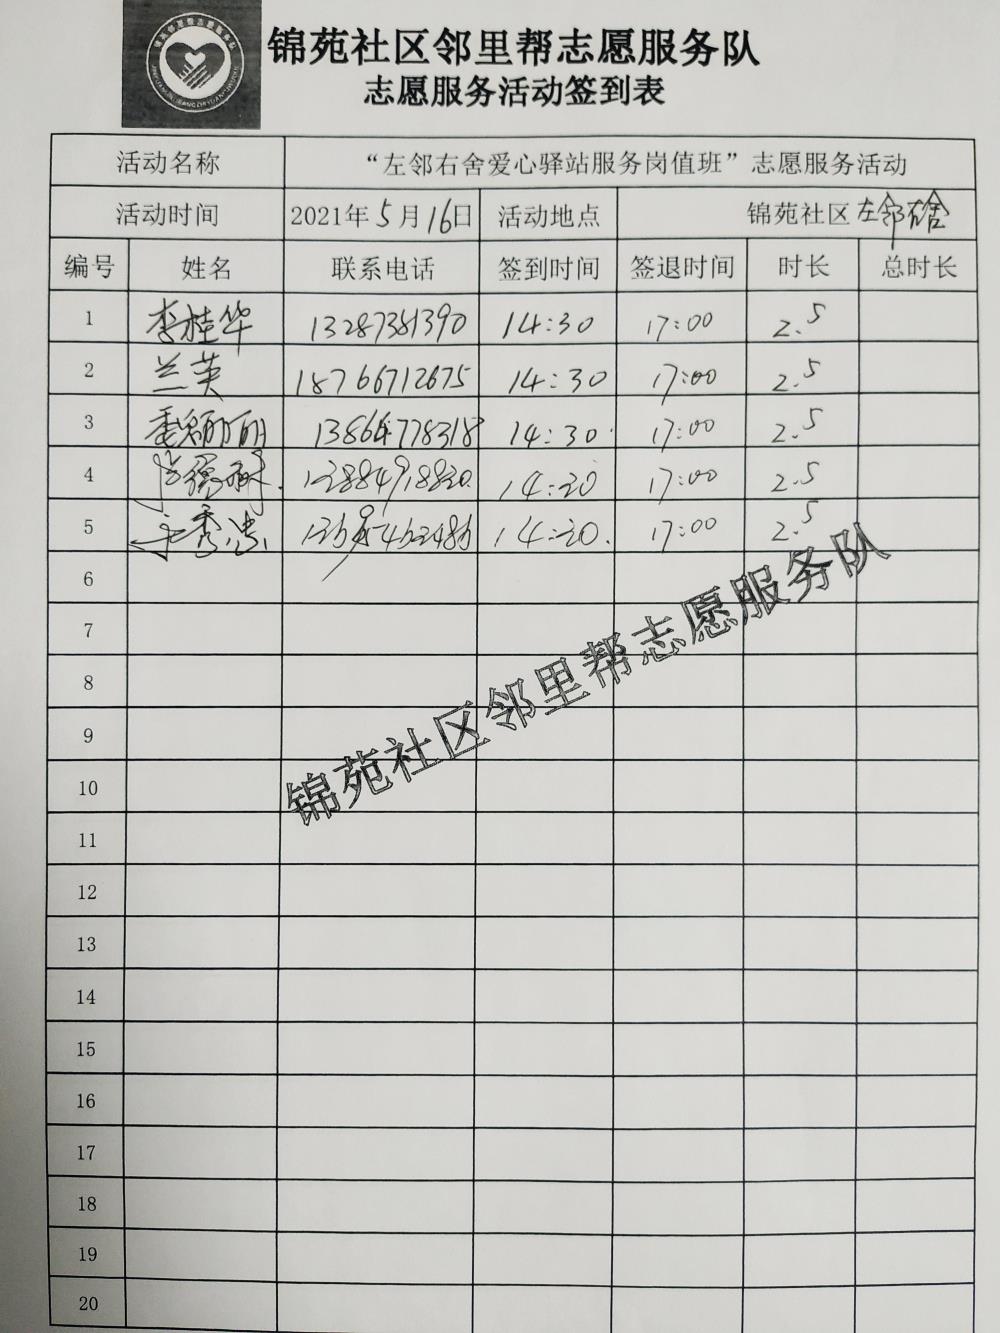 锦苑社区邻里帮志愿服务队
志愿服务活动签到表
活动名称 “左邻右舍爱心驿站服务岗值班”志愿服务活动
活动时间 2021年5月16日 活动地点 锦苑社区左邻右舍
编号 姓名 联系电话 签到时间 签退时间 时长 总时长
1 李桂华 13287381390 14:30 17:00 2.5
2 兰英 18766712675 14:30 17:00 2.5
3 14:30 17:00 2.5
4 14:30 17:00 2.5
5 14:30. 17:00 2.5
6
7
8
9
10
11
12
13
14
15
16
17
18
19
20
锦苑社区邻里帮志愿服务队